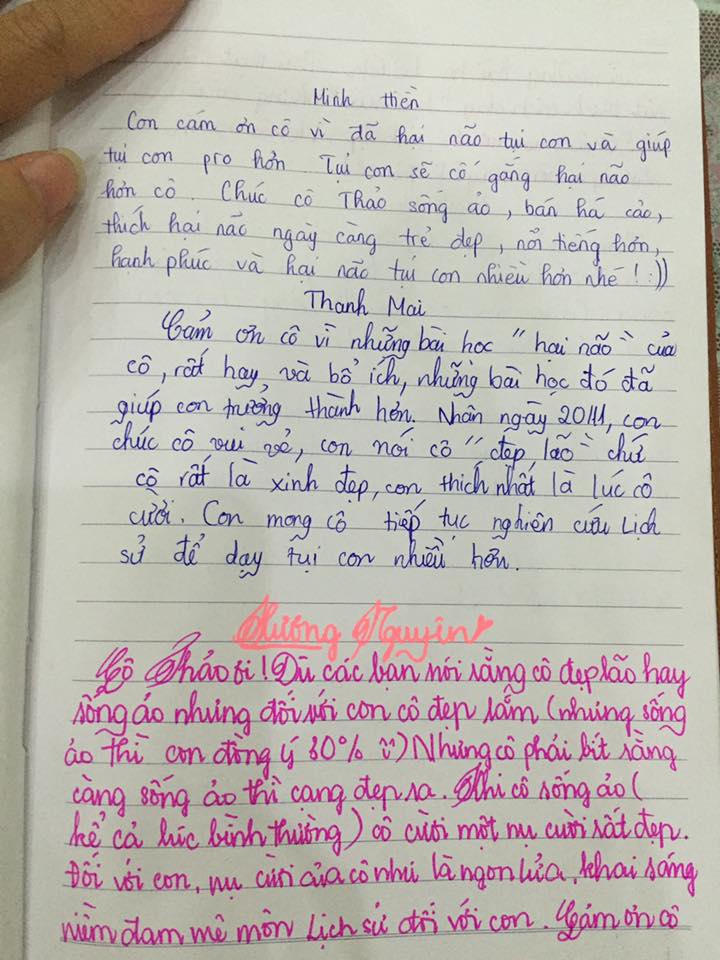 Minh thiền
Con cám ơn cô vì đã hại não tụi con và giúp
tụi con pro hơn Tụi con sẽ cố gắng hại não
hơn cô. Chúc cô Thảo sống ảo, bán há cảo,
thích hại não ngày càng trẻ đẹp, nổi tiếng hơn,
hạnh phúc và hại não tụi con nhiều hơn nhé! :))
Thanh Mai
Cảm ơn cô vì những bài học "hại não" của
cô, rất hay và bổ ích, những bài học đó đã
giúp con trưởng thành hơn. Nhân ngày 20/11, con
chúc cô vui vẻ, con nói cô "đẹp lão" chứ
cô rất là xinh đẹp, con thích nhất là lúc cô
cười. Con mong cô tiếp tục nghiên cứu Lịch
sử để dạy tụi con nhiều hơn.
Phương Nguyên
Cô Thảo ơi! Dù các bạn nói rằng cô đẹp lão hay
sống ảo nhưng đối với con cô đẹp lắm (nhưng sống
ảo thì con đồng ý 80% ü) Nhưng cô phải bít rằng
càng sống ảo thì cang đẹp ra. Khi cô sống ảo (
kể cả lúc bình thường) cô cười một nụ cười rất đẹp.
Đối với con, nụ cười của cô như là ngọn lửa, khai sáng
niềm đam mê môn Lịch sử đối với con. Cám ơn cô